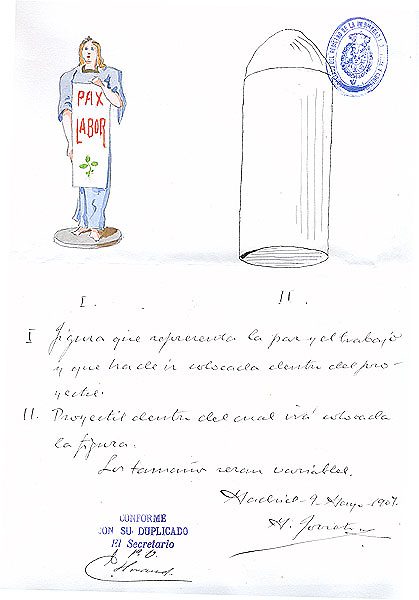 PAX
LABOR
I.
II.
I Figura que representa la paz y el trabajo
y que ha de ir colocada dentro del pro-
yectil.
II. Proyectil dentro del cual irá colocada
la figura.
Los tamaños seran variables.
Madrid 9 Mayo 1907.
CONFORME
CON SU DUPLICADO
El Secretario
P. O.